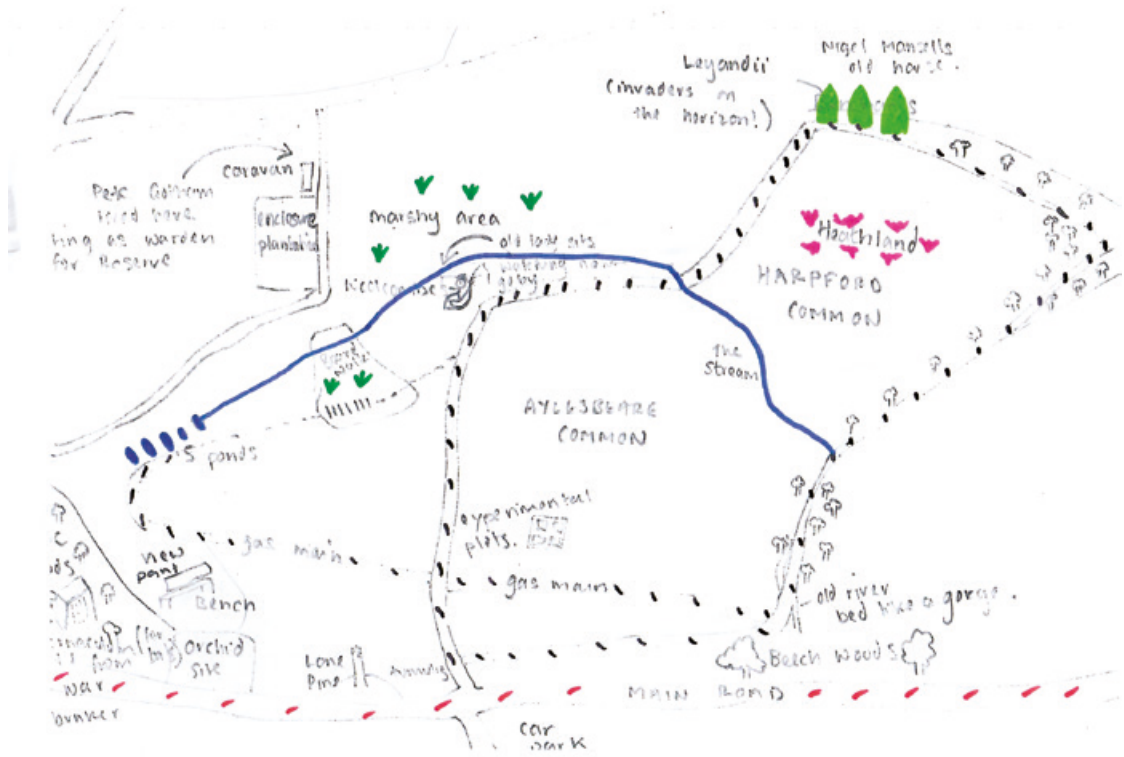 Nigel Mansells
old house.
Leyandii
(invaders on
the horizon!)
caravan
Pete
have
ting as warden
for Reserve
enclosure
plantation
marshy area
old lady sits
watched
Heathland
HARPFORD
COMMON
The
stream
AYLESBEARE
COMMON
5 ponds
experimental
plots.
gas main
gas main
new
Bench
old river
bed like a gorge.
Orchid
site
from
Lone
Pine
Beech Woods
MAIN ROAD
war
bunker
car
park